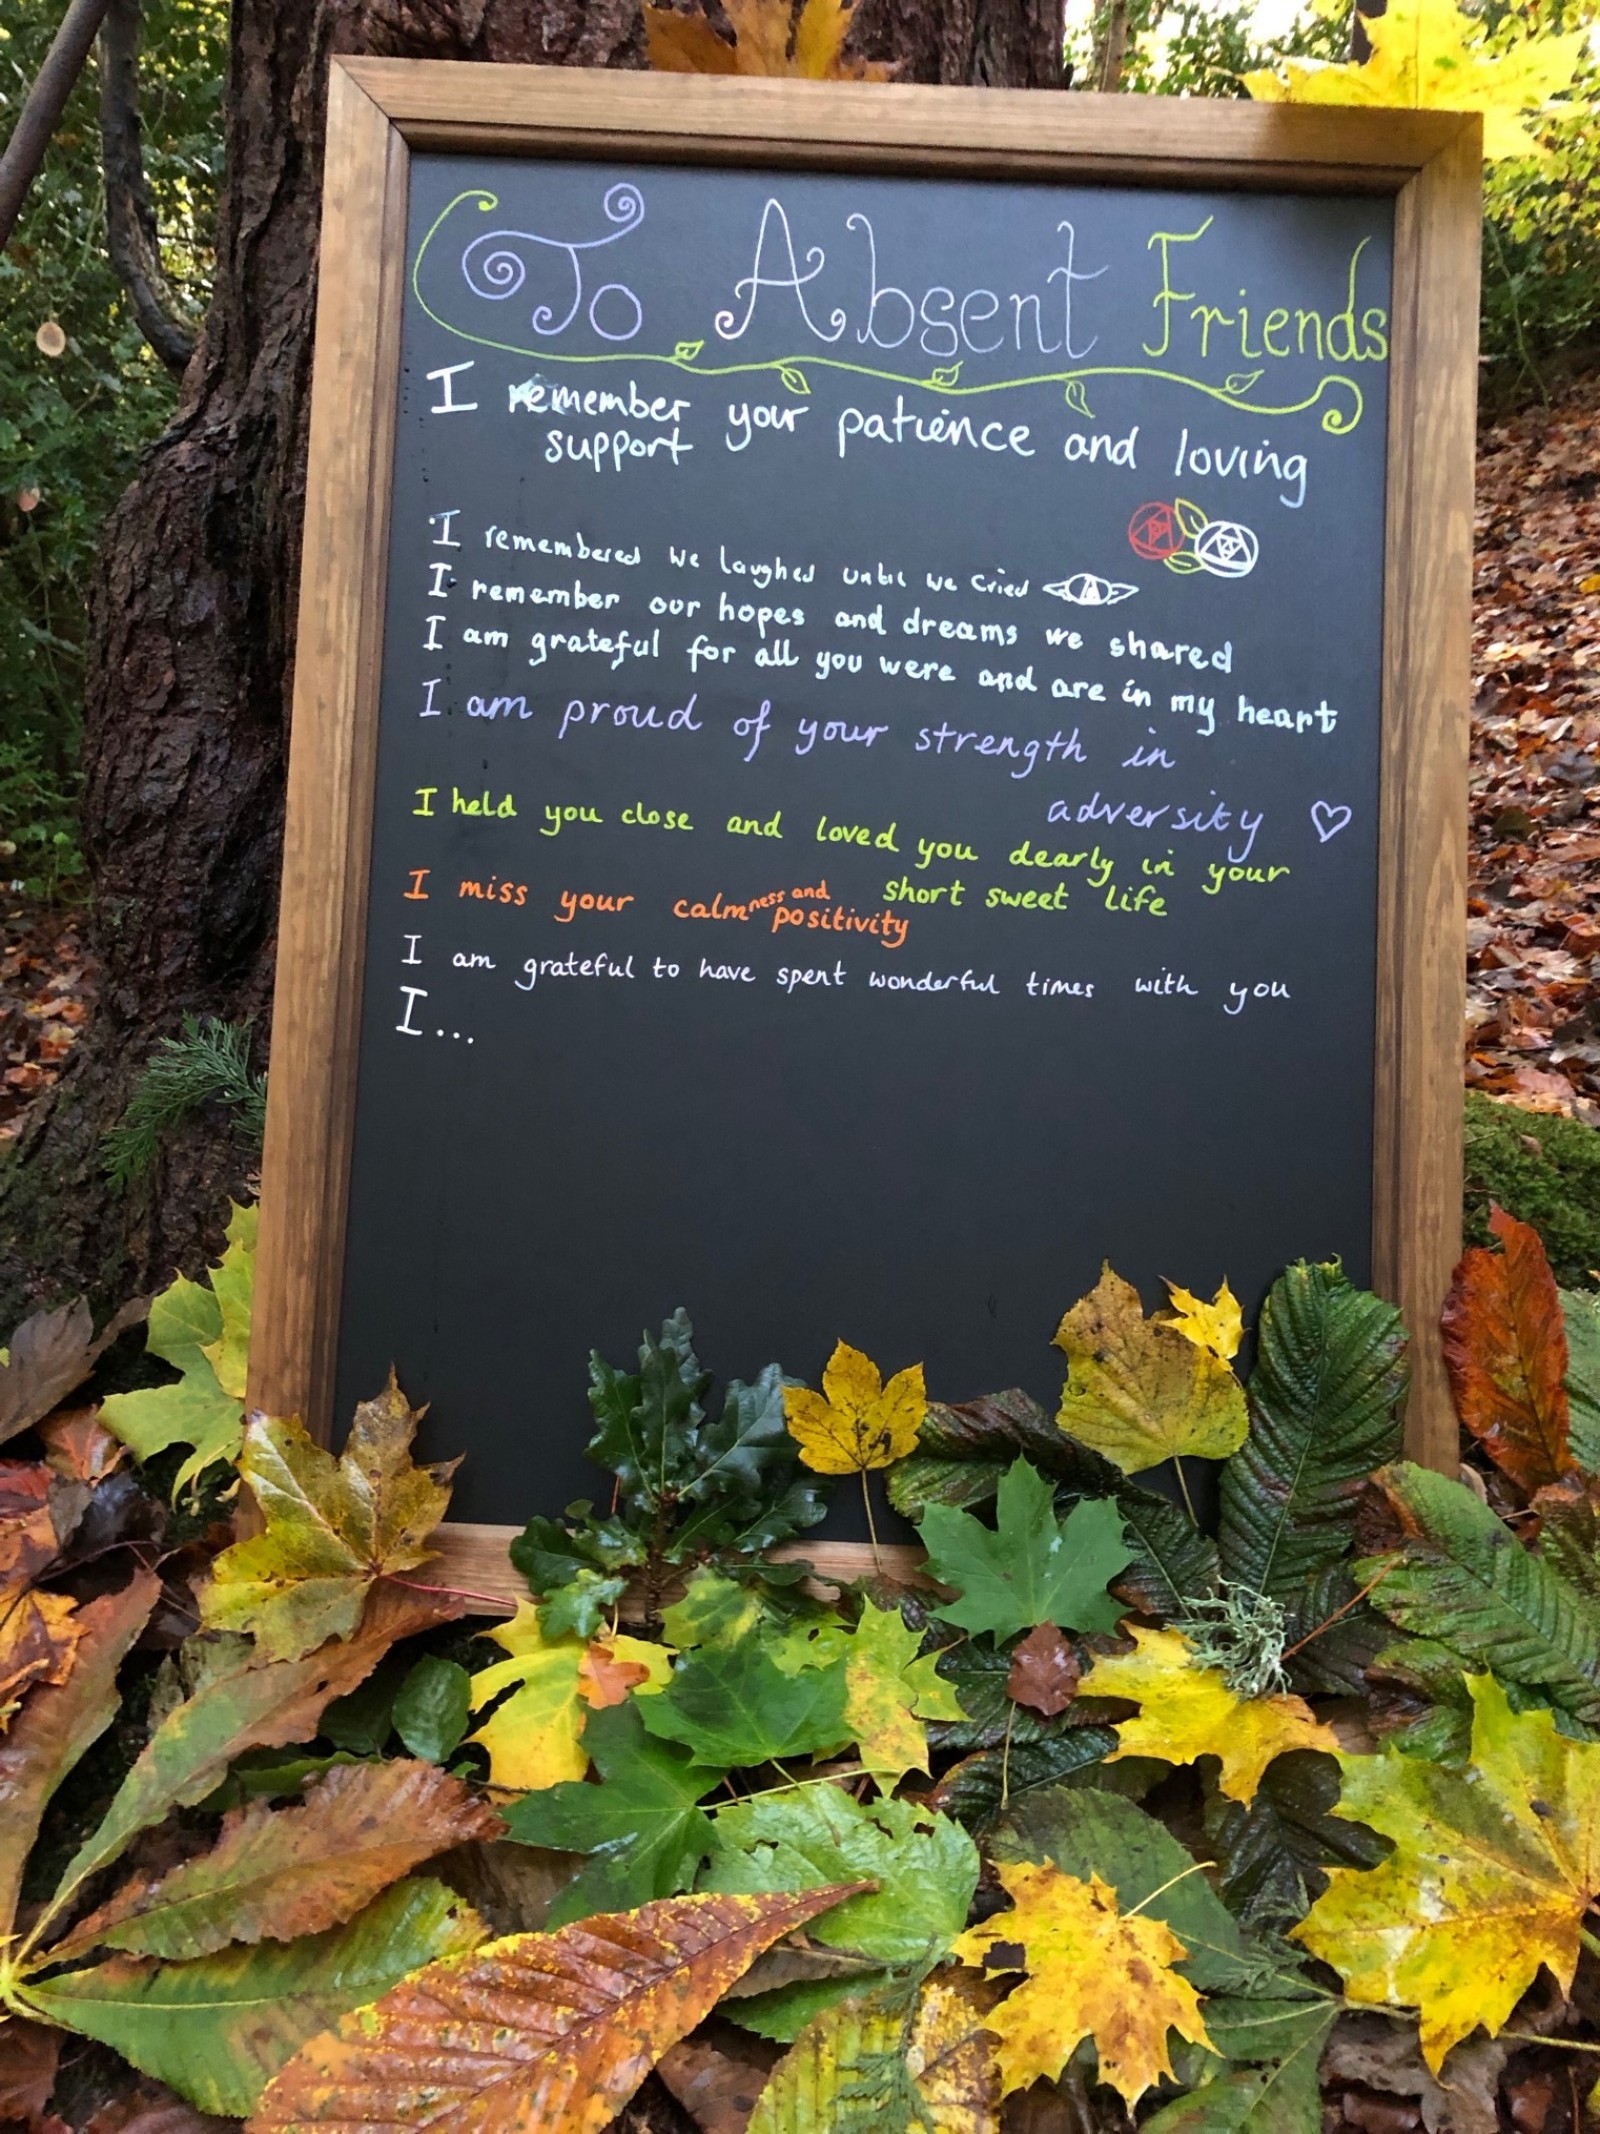 To Absent Friends
I remember your patience and loving
support
I remembered we laughed until we cried
I remember our hopes and dreams we shared
I am grateful for all you were and are in my heart
I am proud of your strength in
adversity
I held you close and loved you dearly in your
short sweet life
I miss your calmness and
positivity
I am grateful to have spent wonderful times with you
I...